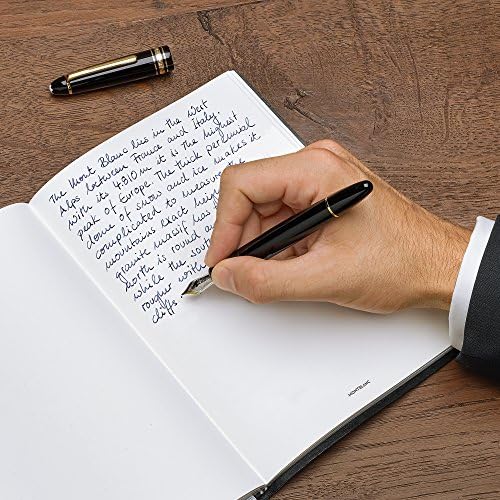 The Mont Blanc lies in the West
Alps between France and Italy.
With its 4.810 m it is the highest
peak of Europe. The thick perennial
dome of snow and ice makes it
complicated to measure the
mountains exact heig
granite massif has
North is round a
while the sout
rougher with
cliffs
MONTBLANC